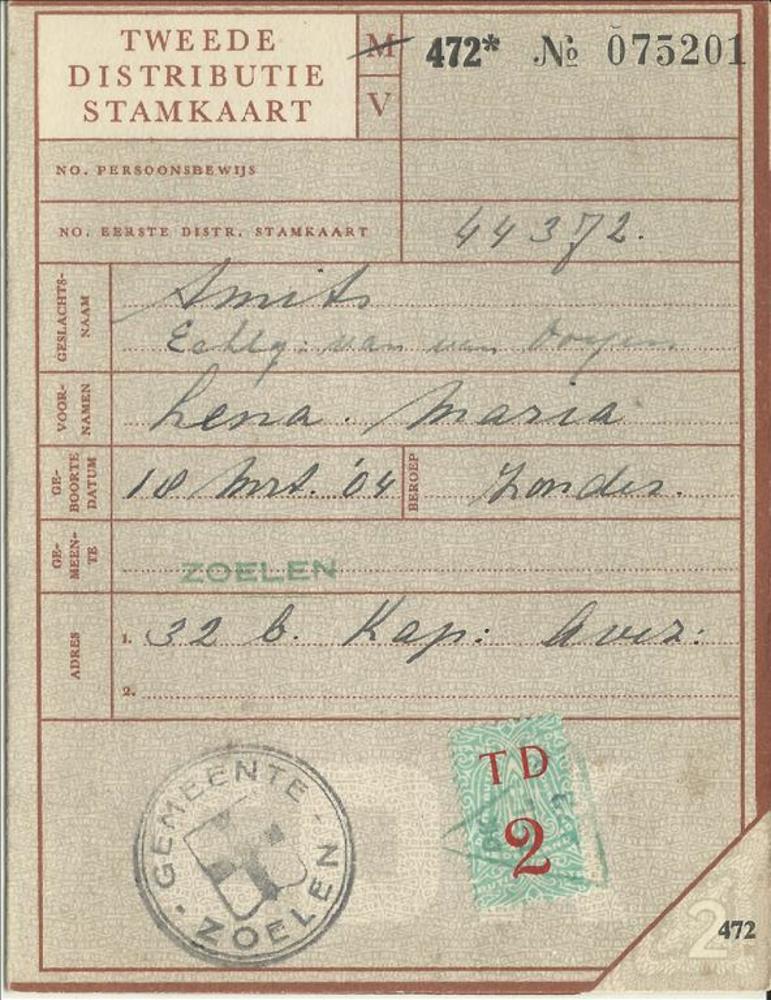 TWEEDE
DISTRIBUTIE
STAMKAART
M
V
472* № 075201
NO. PERSOONSBEWIJS
NO. EERSTE DISTR. STAMKAART 44372.
GESLACHTS-
NAAM
Smits
Echtg: van van Ooyen
VOOR-
NAMEN
Lena. Maria
GE-
BOORTE
DATUM
18 Mrt. '04
BEROEP
Zonder.
GE-
MEEN-
TE
ZOELEN
ADRES
1. 32 b. Kap: Avez:
2.
GEMEENTE - ZOELEN -
TD
2
2
472